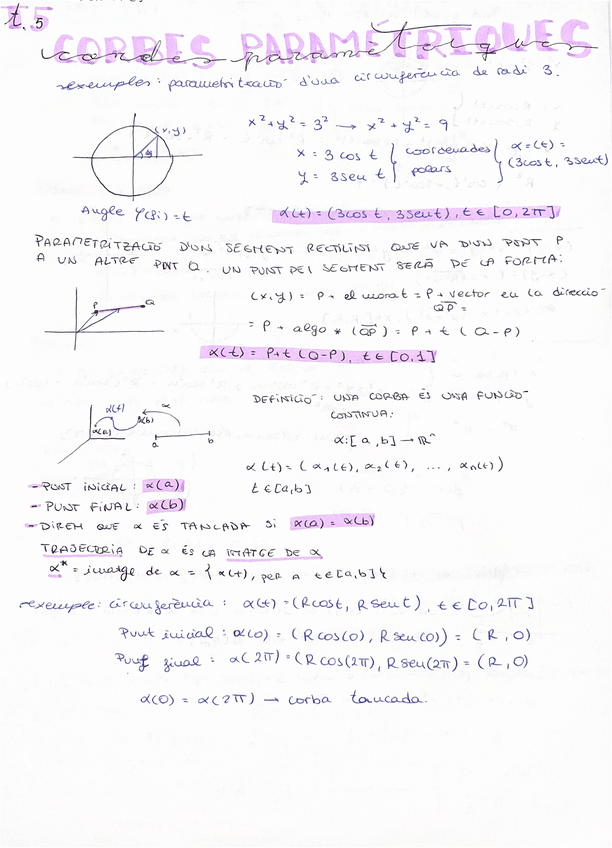 t.5
CORBES PARAMÉTRIQUES
corbes paramètriques
exemples: parametrització d'una circumferència de radi 3.
(x,y)
x² + y² = 3² → x² + y² = 9
x = 3 cos t } coordenades } α(t) =
y = 3 sen t } polars } (3cost, 3sent)
Angle φ(fi) = t
α(t) = (3cos t, 3sent), t ∈ [0, 2π]
PARAMETRITZACIÓ D'UN SEGMENT RECTILINI QUE VA D'UN PUNT P
A UN ALTRE PUNT Q. UN PUNT DEL SEGMENT SERÀ DE LA FORMA:
P Q
(x,y) = P + el morat = P + vector en la direcció
QP =
= P + algo * (QP) = P + t (Q-P)
α(t) = P+t (Q-P), t ∈ [0,1]
DEFINICIÓ: UNA CORBA ÉS UNA FUNCIÓ
CONTINUA:
α(t) α
α(a) α(b)
a b
α: [a,b] → ℝⁿ
α(t) = (α₁(t), α₂(t), ..., αn(t))
t ∈ [a,b]
- PUNT INICIAL: α(a)
- PUNT FINAL: α(b)
- DIREM QUE α ÉS TANCADA SI α(a) = α(b)
TRAJECTORIA DE α ÉS LA IMATGE DE α
α* = imatge de α = { α(t), PER A t ∈ [a,b] }
exemple: circumferència: α(t) = (Rcost, Rsent), t ∈ [0, 2π]
Punt inicial: α(0) = (R cos(0), R sen(0)) = (R, 0)
Punt final: α(2π) = (R cos(2π), R sen(2π) = (R, 0)
α(0) = α(2π) → corba tancada.